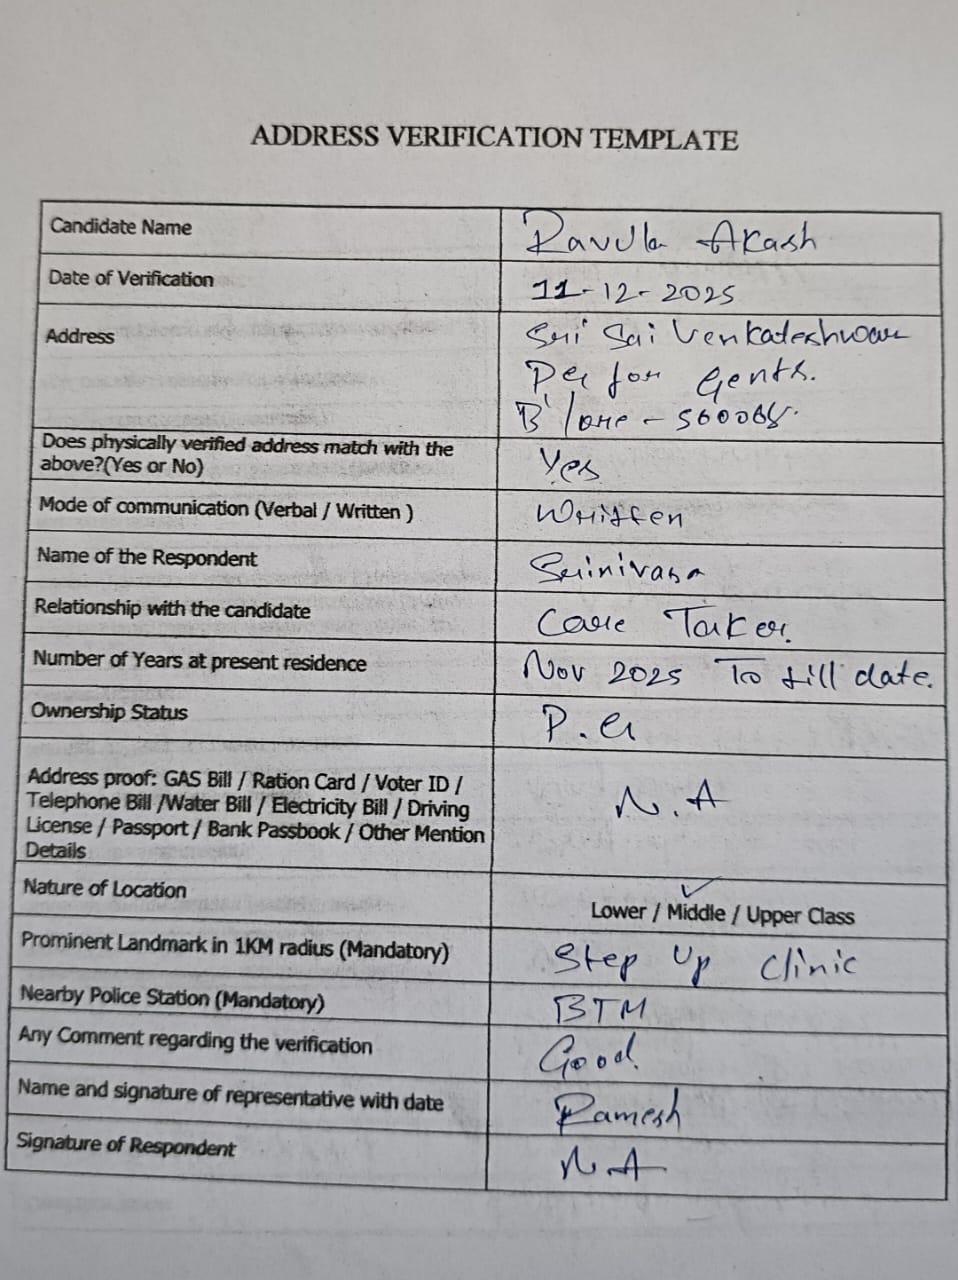 ADDRESS VERIFICATION TEMPLATE
Candidate Name Ravula Akash
Date of Verification 11-12-2025
Address Sri Sai Venkateshwar
PG for Gents.
B'lore - 560068.
Does physically verified address match with the
above?(Yes or No) Yes
Mode of communication (Verbal / Written ) Written
Name of the Respondent Srinivasa
Relationship with the candidate Care Taker.
Number of Years at present residence Nov 2025 To till date.
Ownership Status P.G
Address proof: GAS Bill / Ration Card / Voter ID /
Telephone Bill /Water Bill / Electricity Bill / Driving
License / Passport / Bank Passbook / Other Mention
Details N.A
Nature of Location Lower / Middle / Upper Class
Prominent Landmark in 1KM radius (Mandatory) Step Up Clinic
Nearby Police Station (Mandatory) BTM
Any Comment regarding the verification Good.
Name and signature of representative with date Ramesh
Signature of Respondent N.A